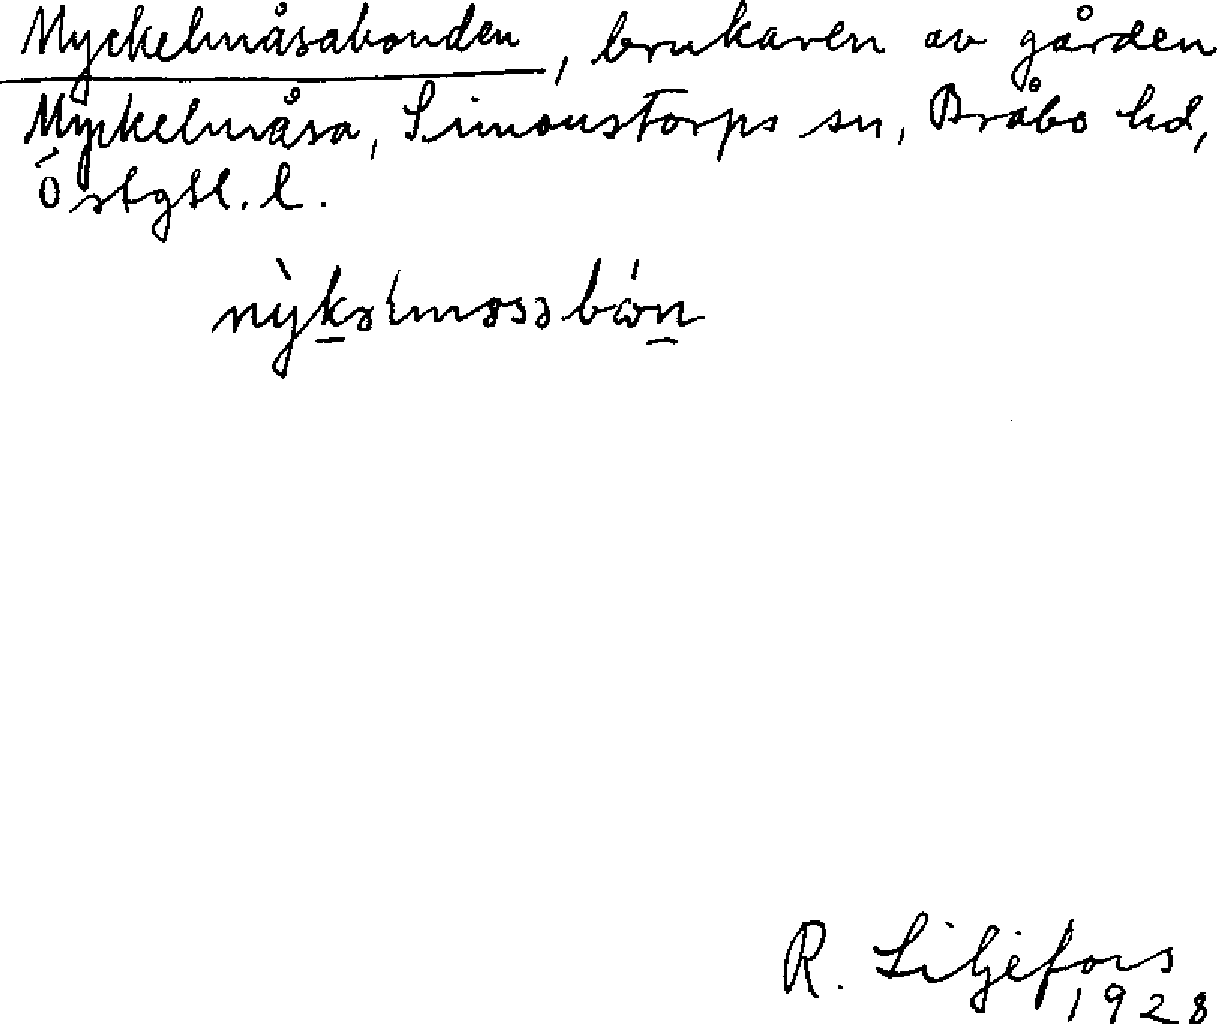 Myckelmåsabonden, brukaren av gården
Myckelmåsa, Simonstorps sn, Bråbo hd,
Östgtl. l.
R. Liljefors
1928